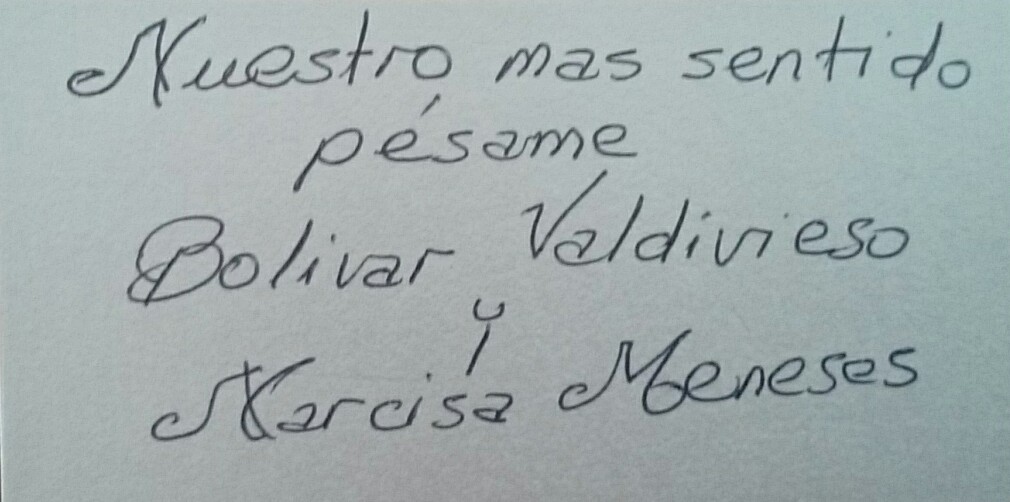 Nuestro mas sentido
pésame
Bolivar Valdivieso
y
Narcisa Meneses